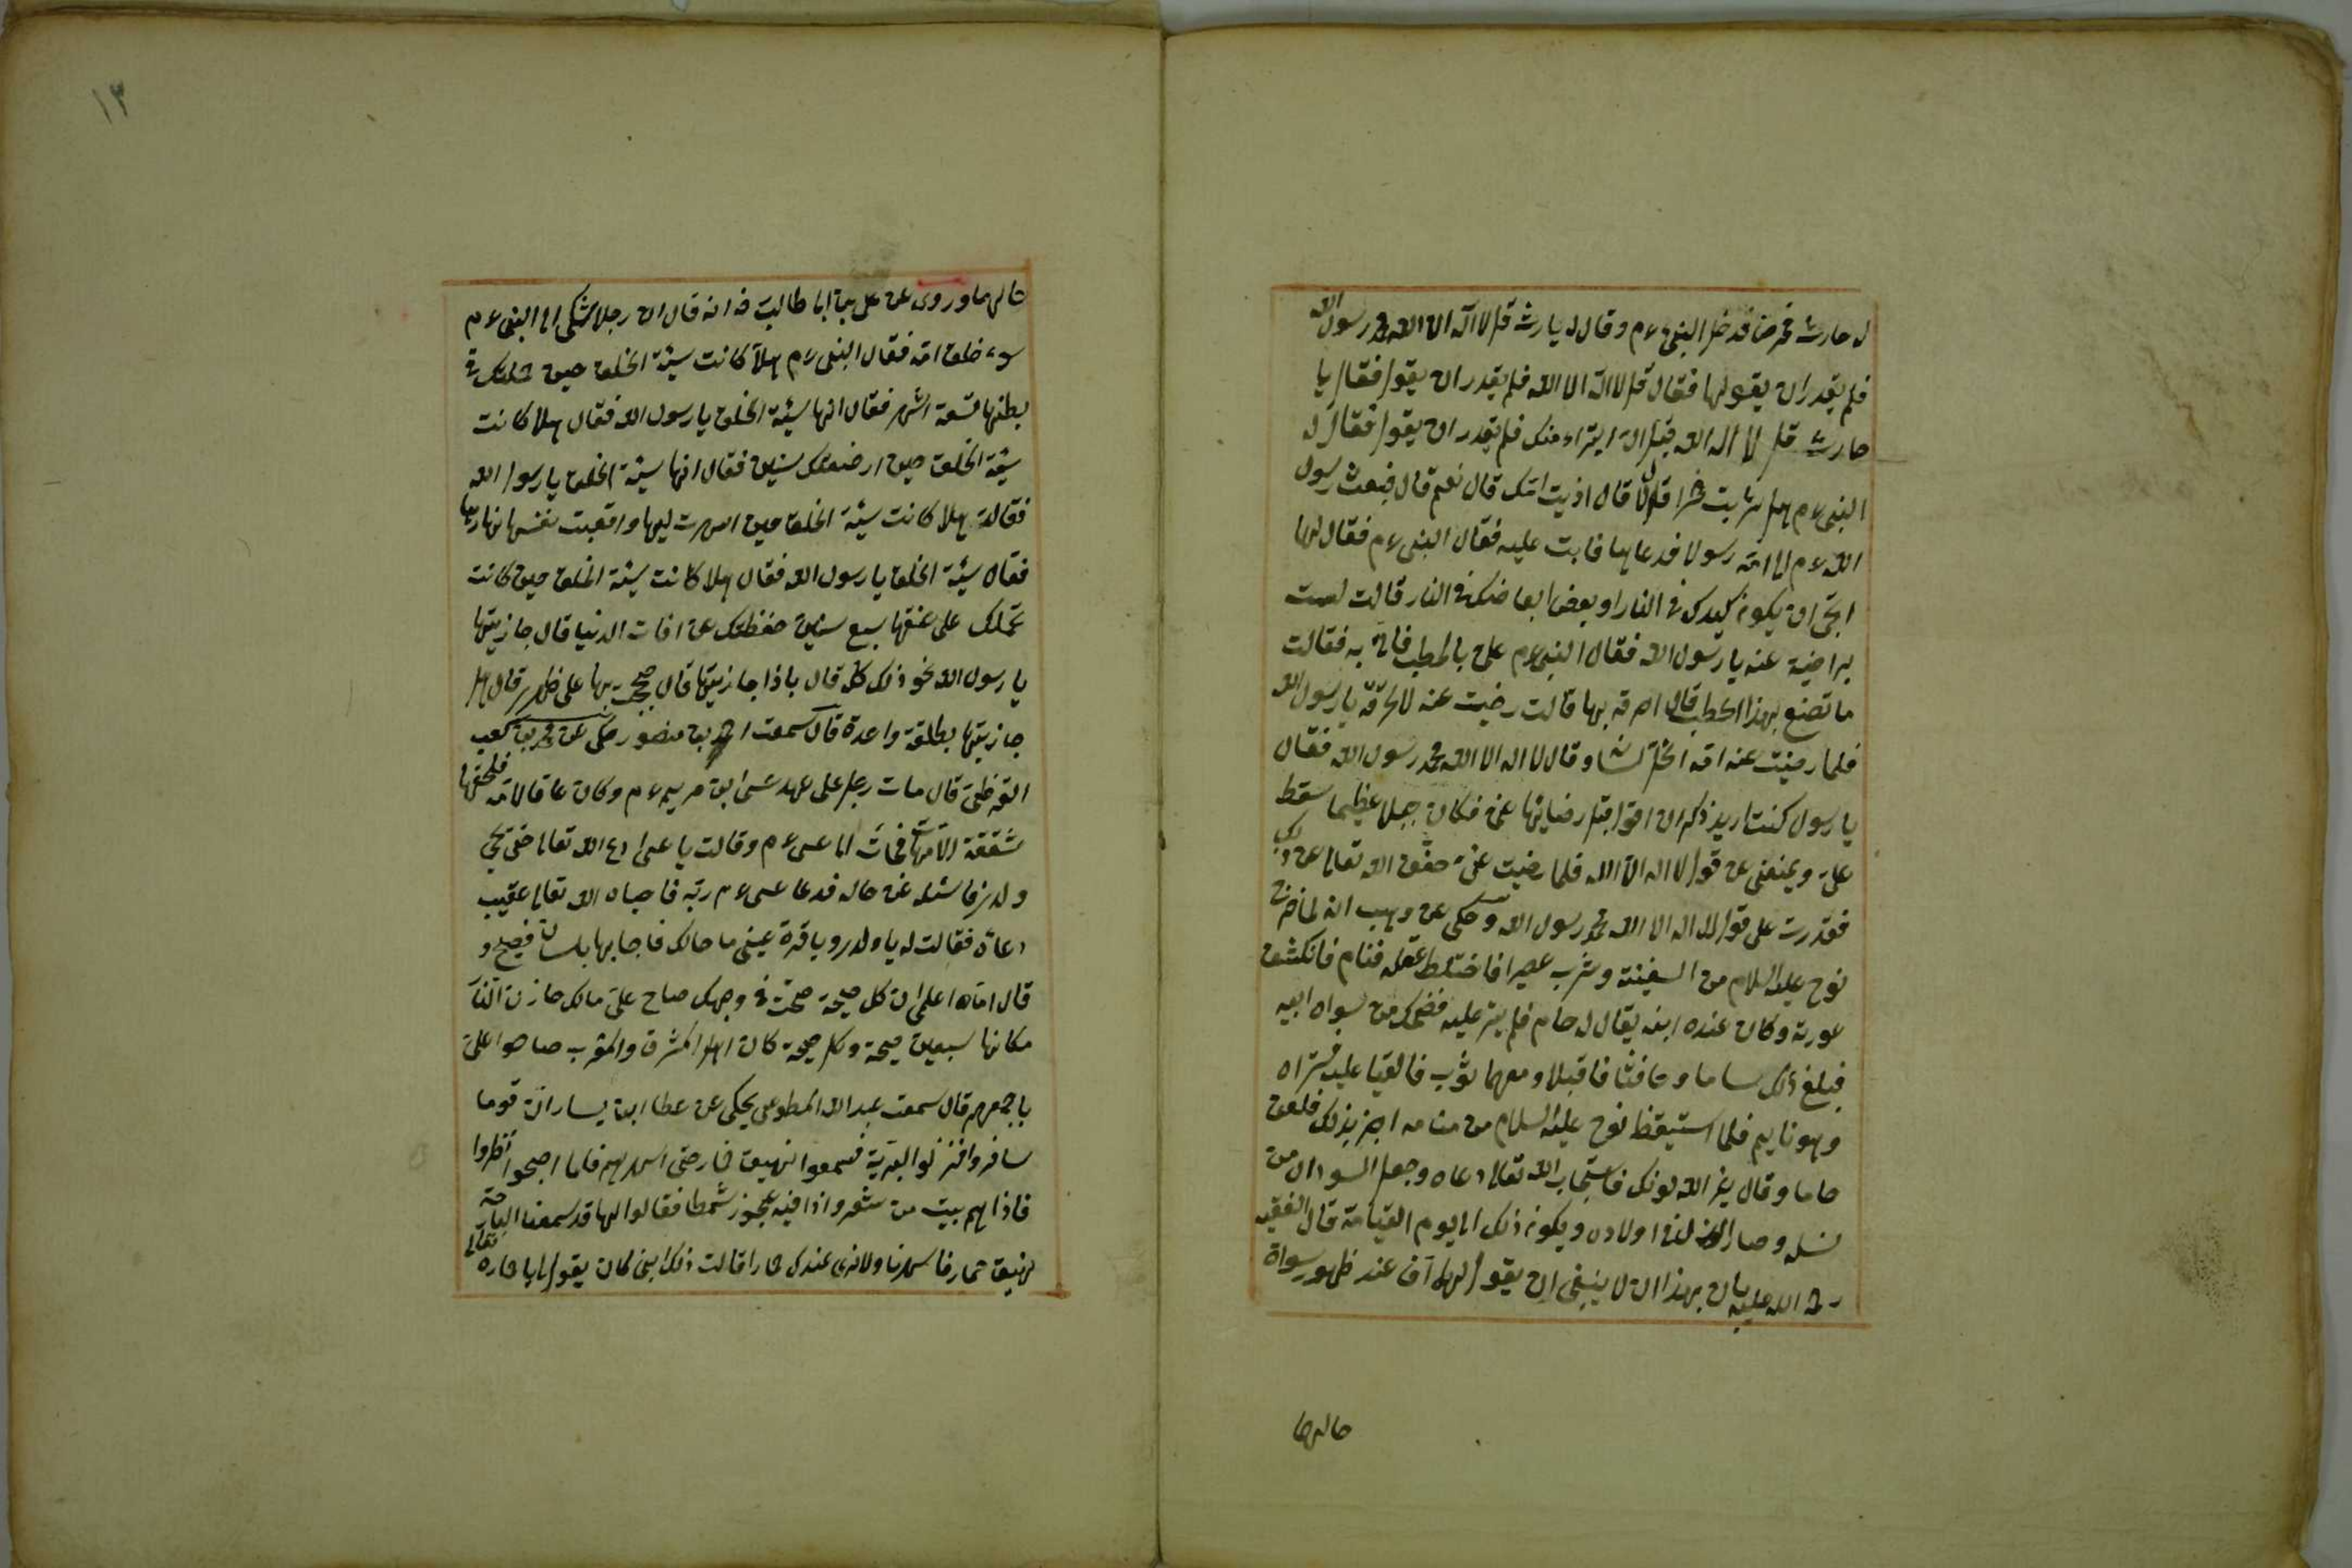 له حارث فمرض فدخل النبى ءم وقال له يارث قل لا اله الا الله محمد رسول الله
فلم يقدر ان يقولها فقال قل لا اله الا الله فلم يقدر ان يقول فقال يا
حارث قل لا اله الله قبل ان ايتراء منك فلم يقدر ان يقول فقال له
النبى ءم هل شربت خمرا قال لا قال اذيت امك قال نعم قال فبعث رسول
الله ءم الى امه رسولا فدعاها فابت عليه فقال النبى ءم فقال لها
اتحبى ان يكون كبدك فى النار او بعض ابعاضك فى النار قالت لست
براضية عنه يا رسول الله فقال النبى ءم على بالحطب فاتى به فقالت
ما تصنع بهذا الحطب قال احرقه بها قالت رضيت عنه لا تحرقه يا رسول الله
فلما رضيت عنه امه انحل لسانه وقال لا اله الا الله محمد رسول الله فقال
يا رسول كنت اريد ذكر ان اقول قبل رضائها عنى فكان جبلا عظيما سقط
على ويمنعنى عن قول لا اله الا الله فلما رضيت عنى خفف الله تعالى عن ذلك
فقدرت على قول لا اله الا الله محمد رسول الله وحكى عن وهب انه لما خرج
نوح عليه السلام من السفينة وشرب عصيرا فاختلط عقله فنام فانكشف
عورته وكان عنده ابنه يقال له حام فلم يستر عليه فضحك من سواه ابيه
فبلغ ذلك ساما و يافثا فاقبلا ومعهما ثوب فالقيا عليه فستراه
وهو نايم فلما استيقظ نوح عليه السلام من منامه اخبر بذلك فلعن
حاما وقال يغير الله لونك فاستجاب الله تعالى دعاه وجعل السودان من
نسله وصار اللون لغير اولاده ويكون ذلك الى يوم القيامة قال الفقيه
رحمة الله عليه بان بهذا ان لا ينبغى ان يقول لهما اف عند ظهور سواة
حالهما
١٣
حالهما وروى عن على بن ابى طالب رضه انه قال ان رجلا شكى الى النبى ءم
سوء خلق امه فقال النبى ءم هلا كانت سيئة الخلق حين حملتك فى
بطنها تسعة اشهر فقال انها سيئة الخلق يا رسول الله فقال هلا كانت
سيئة الخلق حين ارضعتك سنين فقال انها سيئة الخلق يا رسول الله
فقال له هلا كانت سيئة الخلق حين اسهرت ليلها واتعبت نفسها نهارها
فقال سيئة الخلق يا رسول الله فقال هلا كانت سيئة الخلق حين كانت
تحملك على عنقها سبع سنين حفظتك عن افات الدنيا قال جازيتها
يا رسول الله نحو ذلك كله قال باذا جازيتها قال حججت بها على ظهرى قال هل
جازيتها بطلقة واحدة قال سمعت احمد بن منصور حكى عن محمد بن كعب
القرظى قال مات رجل على عهد عيسى ابن مريم ءم وكان عاقا لامه فلحقها
شفقة الامهات فجائت الى عيسى ءم وقالت يا عيسى ادع الله تعالى حتى يحيى
ولدى فاسئله عن حاله فدعا عيسى ءم ربه فاحياه الله تعالى عقيب
دعائه فقالت له يا ولدى ويا قرة عينى ما حالك فاجابها بلسان فصيح و
قال اماه اعلمى ان كل صيحة صحت فى وجهك صاح على مالك خازن النار
مكانها سبعين صيحة وكل صيحة كان اهل المشرق والمغرب صاحوا على
باجمعهم قال سمعت عبد الله المطوعى يحكى عن عطا ابن يسار ان قوما
سافروا فنزلوا البرية فسمعوا نهيق حمار حتى اسهرهم فلما اصبحوا انظروا
فاذا لهم بيت من شعر واذا فيه عجوز شمطا فقالوا لها قد سمعنا البارحة
نهيق حمار فاسهرنا ولا نرى عندك حمارا قالت ذلك ابنى كان يقول لى يا حماره تعالى